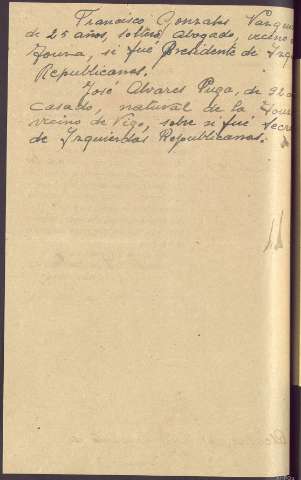 Francisco Gonzales Vazqu
de 25 años, soltero abogado, vecino
Joura, si fué Presidente de Izq
Republicanas.
José Alvares Puga, de 32 a
casado, natural de la
vecino de Vigo, sobre si fué Secre
de Izquierdas Republicanas.